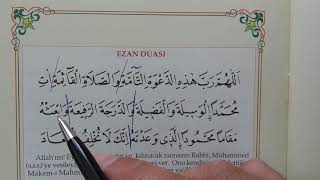 EZAN DUASI
اَللّٰهُمَّ رَبَّ هٰذِهِ الدَّعْوَةِ التَّامَّةِ وَالصَّلَاةِ الْقَائِمَةِ اٰتِ
مُحَمَّدًا اِلْوَسِيلَةَ وَالْفَضِيلَةَ وَالدَّرَجَةَ الرَّفِيعَةَ وَابْعَثْهُ
مَقَامًا مَحْمُودًا اِلَّذِى وَعَدْتَهُ اِنَّكَ لَا تُخْلِفُ
Allah'ım! Bu kılınacak namazın Rabbi, Muhammed
(s.a.v)'e vesileyi ver. Onu kendisine
Makam-ı Mahm